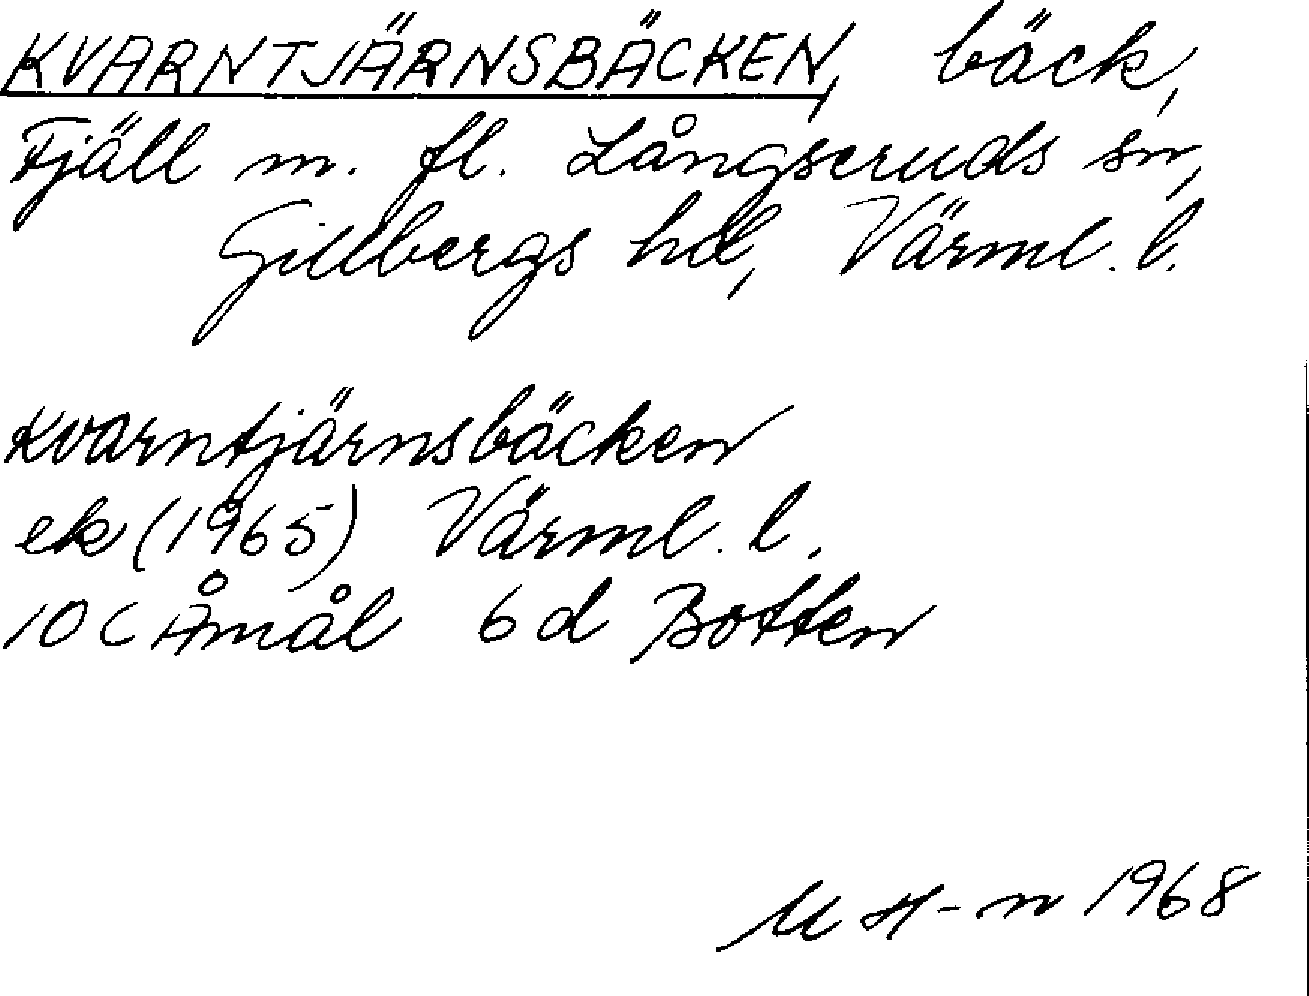 KVARNTJÄRNSBÄCKEN, bäck,
Fjäll m. fl. Långseruds sn,
Gillbergs hd, Värml. l.
Kvarntjärnsbäcken
ek (1965) Värml. l.
10 C Åmål 6 d Botten
M H-n 1968